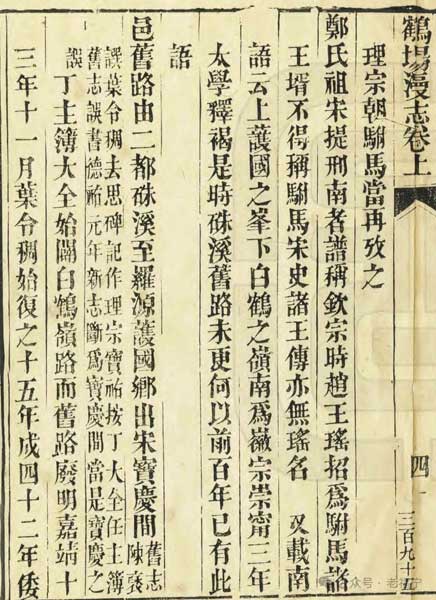 鶴場漫志卷上
四
三百九十五
理宗朝駙馬當再攷之
鄭氏祖宋提刑南者譜稱欽宗時趙王瑤招爲駙馬諸
王壻不得稱駙馬宋史諸王傳亦無瑤名 又載南
語云上護國之峯下白鶴之嶺南爲徽宗崇甯三年
太學釋褐是時硃溪舊路未更何以前百年已有此
語
邑舊路由二都硃溪至羅源護國鄉出宋寶慶間
舊志
陳
誤葉令稠去思碑記作理宗寶祐按丁大全任主簿
舊志誤書德祐元年新志斷爲寶慶間當是寶慶之
誤 丁主簿大全始闢白鶴嶺路而舊路廢明嘉靖十
三年十一月葉令稠始復之十五年成四十二年倭
众号·老